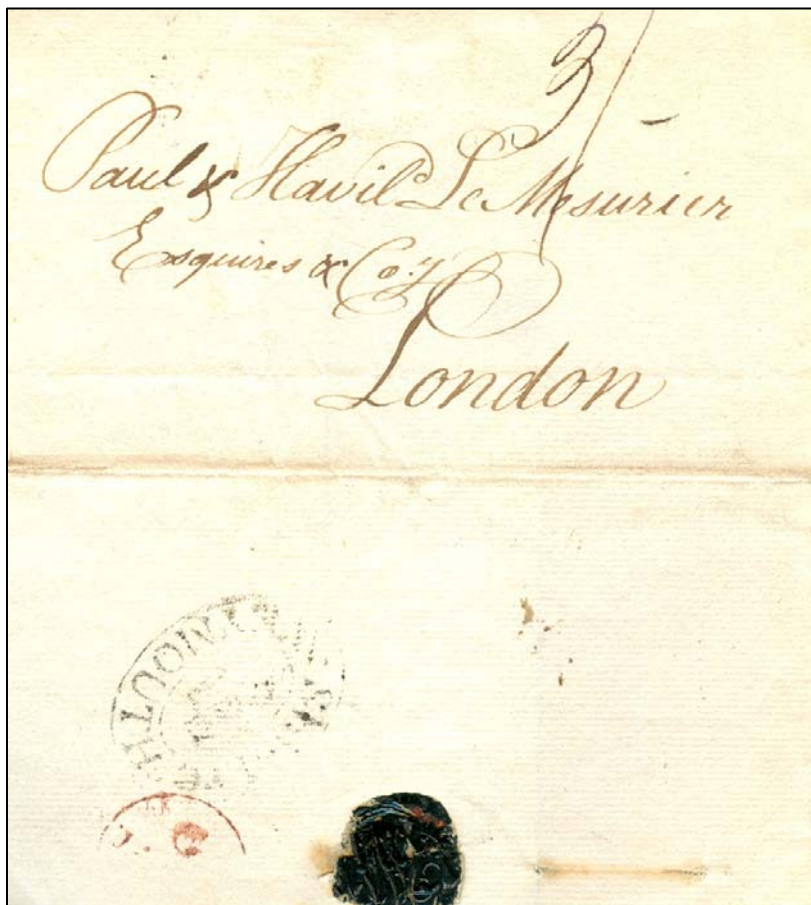 3/-
Paul & Havil.d Le Mesurier
Esquires & Co.y
London